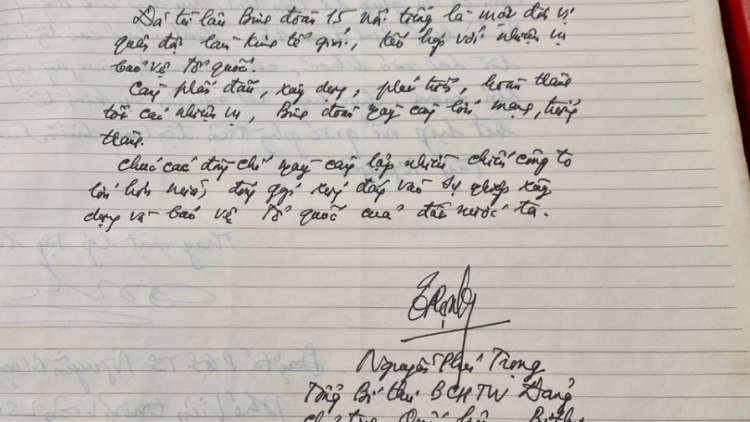 Đã từ lâu Binh đoàn 15 nổi tiếng là một đơn vị
quân đội làm kinh tế giỏi, kết hợp với nhiệm vụ
bảo vệ Tổ quốc.
Càng phấn đấu, xây dựng, phát triển, hoàn thành
tốt các nhiệm vụ, Binh đoàn ngày càng lớn mạnh, trưởng
thành.
Chúc các đồng chí ngày càng lập nhiều chiến công to
lớn hơn nữa, đóng góp xứng đáng vào sự nghiệp xây
dựng và bảo vệ Tổ quốc của đất nước ta.
Nguyễn Phú Trọng
Tổng Bí thư BCHTW Đảng
Chủ tịch Quốc hội